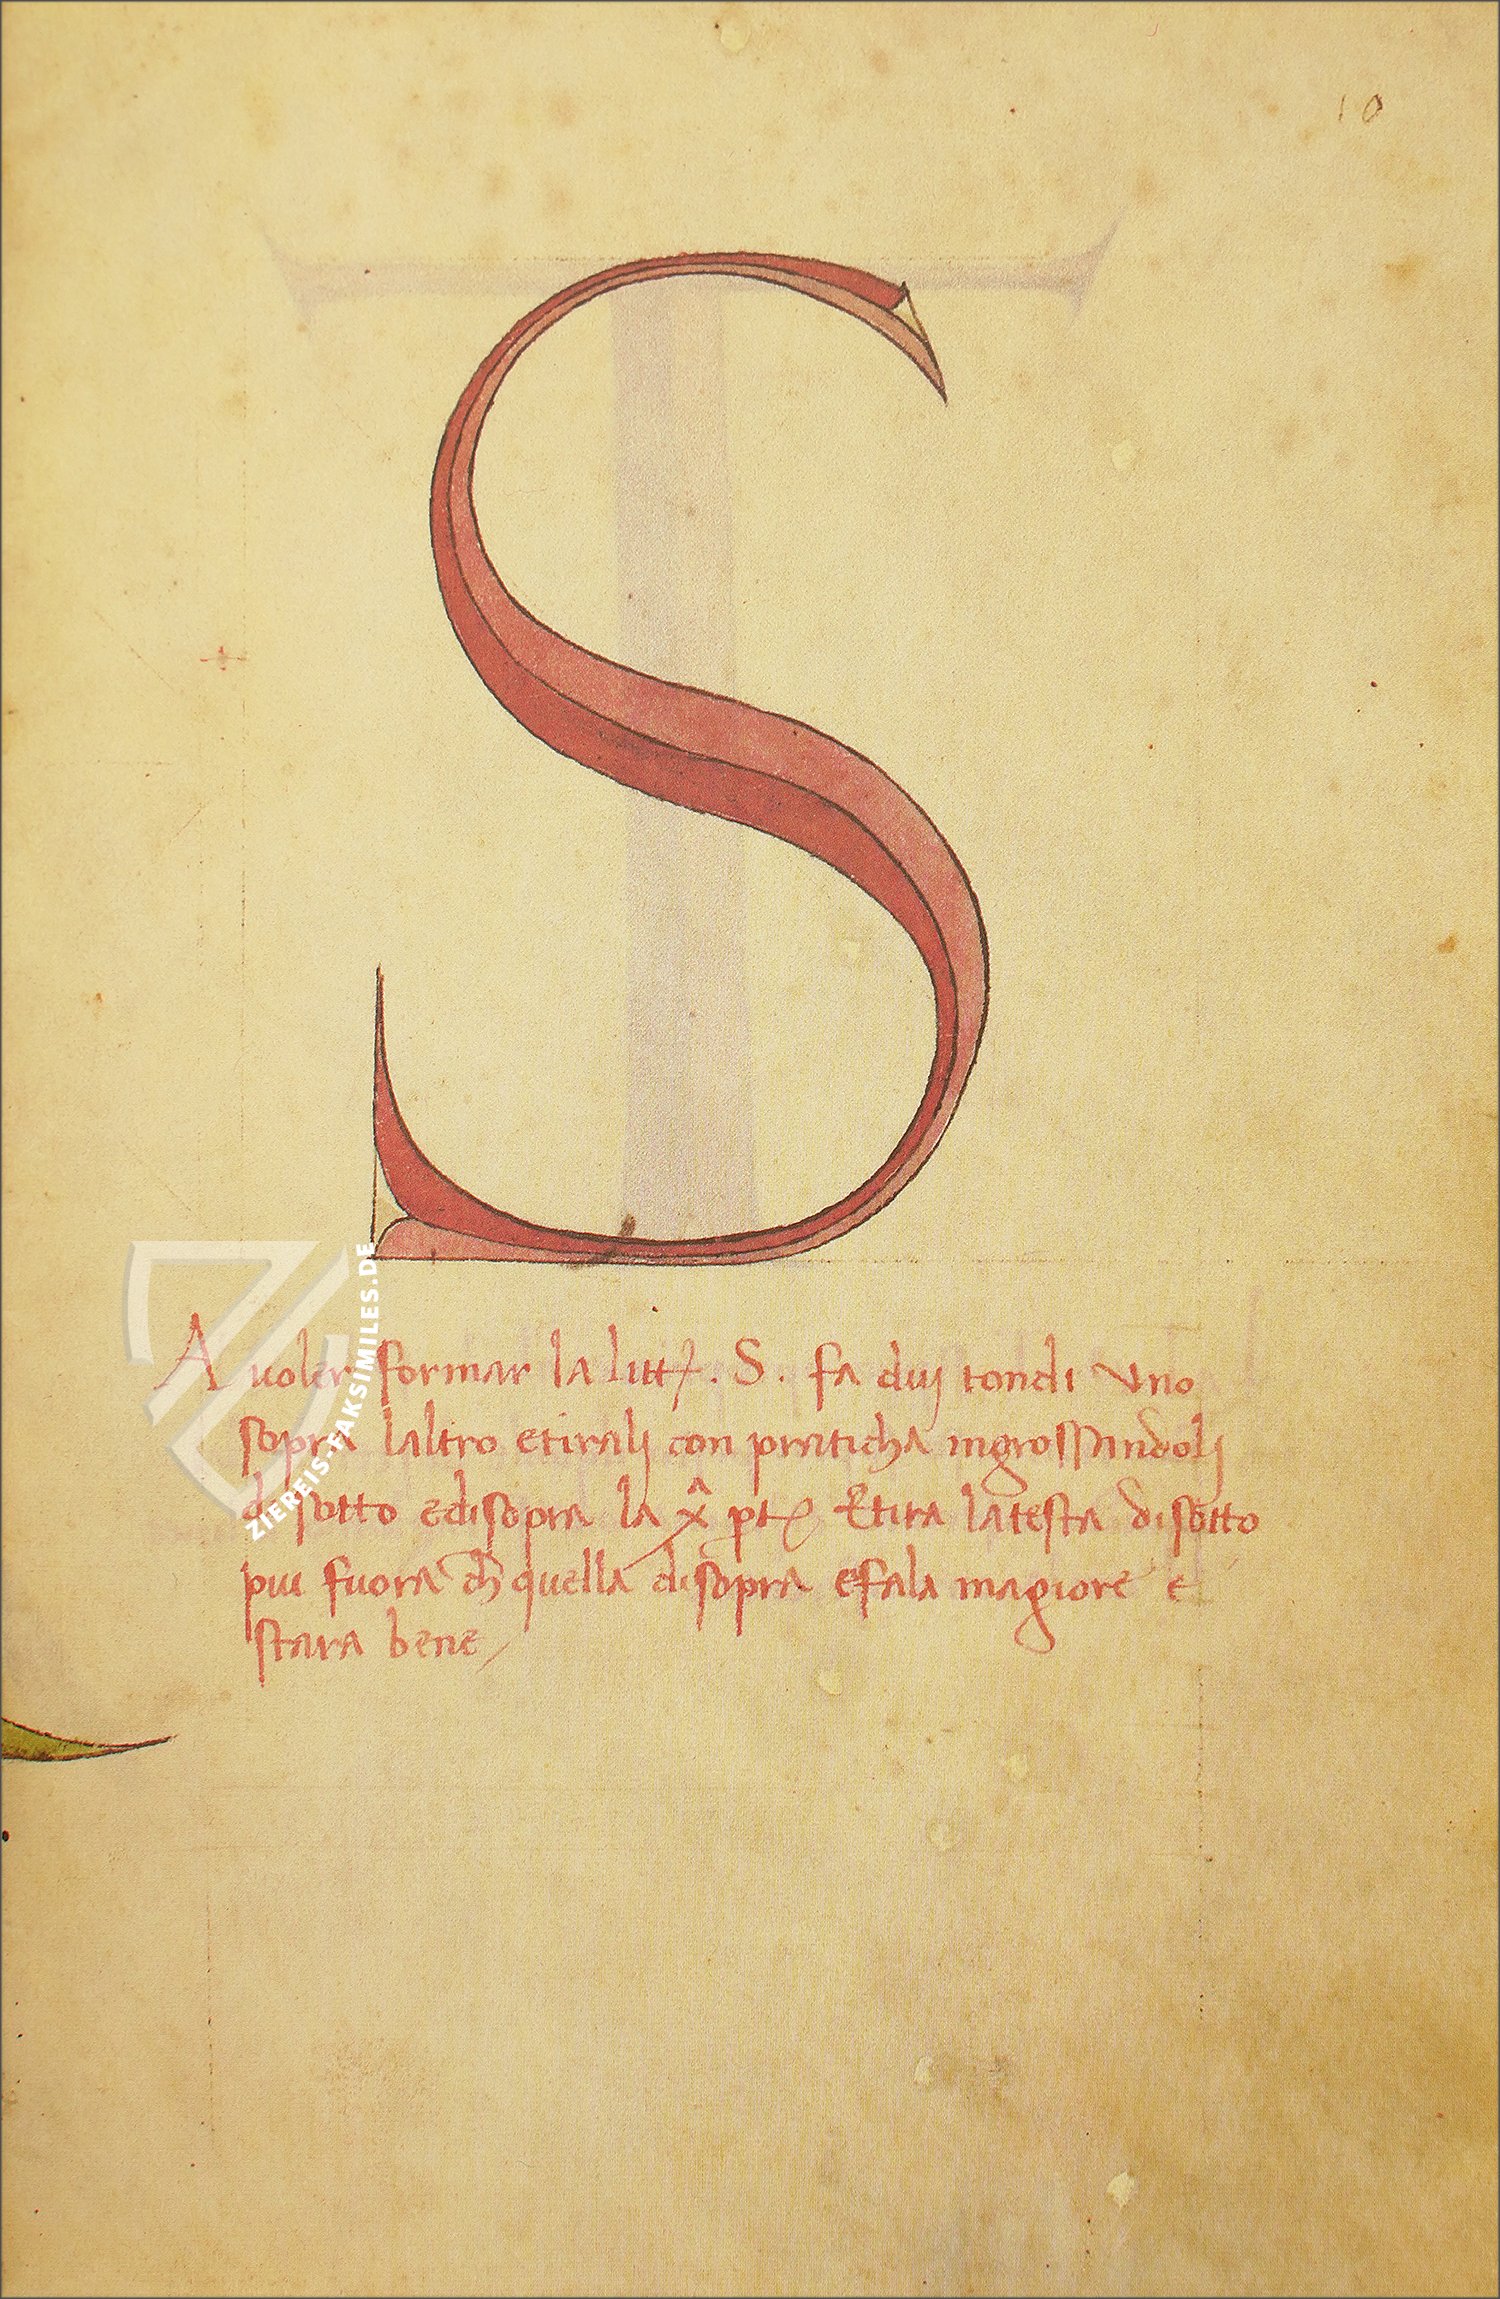 10
S
A voler formar la litt. S. fa duj tondi vno
sopra laltro etiralj con praticha ingrossandolj
desotto edisopra la x̂ pt Etira latesta disotto
piu fuora ch quella disopra efala magiore e
stara bene
ZIEREIS-FAKSIMILES.DE